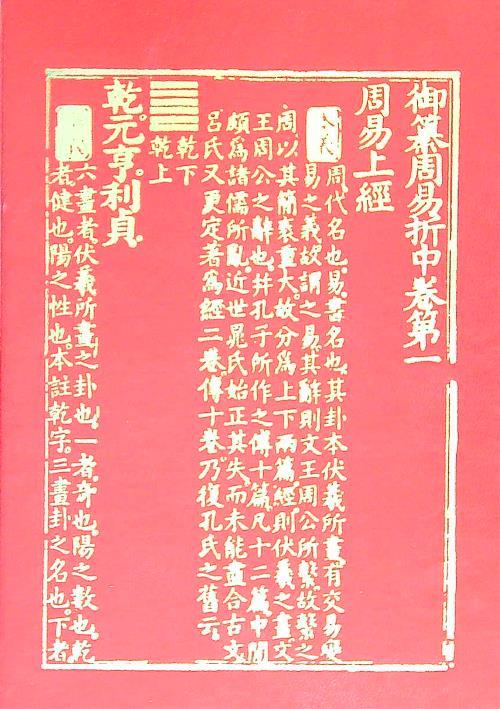 御纂周易折中卷第一
周易上經
本義 周代名也。易書名也。其卦本伏羲所畫。有交易變
易之義。故謂之易。其辭則文王周公所繫。故繫之
周。以其簡袠重大。故分爲上下兩篇。經則伏羲之畫。文
王周公之辭也。幷孔子所作之傳十篇。凡十二篇。中間
頗爲諸儒所亂。近世晁氏始正其失。而未能盡合古文。
呂氏又更定著爲經二卷。傳十卷。乃復孔氏之舊云。
乾下
乾上
乾。元亨。利貞。
六畫者。伏羲所畫之卦也。一者。奇也。陽之數也。乾
者。健也。陽之性也。本註乾字。三畫卦之名也。下者